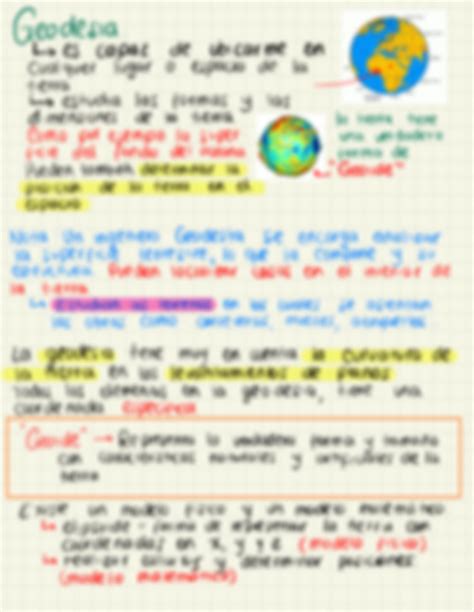 Geodesia
↳ es capaz de ubicarme en
cualquier lugar o espacio de la
tierra
↳ estudia las formas y las
dimensiones de la tierra
Como por ejemplo la super
ficie del fondo del marina
Pueden también determinar la
posicion de la tierra en el
espacio
la tierra tiene
una verdadera
forma de
"Geoide"
Nota Un ingeniero Geodesta se encarga analizar
la superficie terrestre, lo que la conforma y su
estructura. Pueden localizar cosas en el interior de
la tierra
↳ estudian los terrenos en los cuales se
las obras como carreteras, aeropuertos.
La geodesia tiene muy en cuenta la curvatura de
la tierra en los levantamientos de planos
todos los elementos en la geodesia, tiene una
coordenada especifica
"Geoide" → Representa la verdadera forma y tamaño
con características naturales y artificiales de la
tierra
Existe un modelo fisico y un modelo matemático
↳ elipsoide - forma de representar la tierra con
coordenadas en x, y y z (modelo fisico)
↳ realizar calculos y determinar posiciones
(modelo matemático)